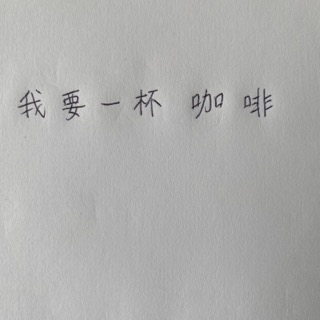 我要一杯 咖啡